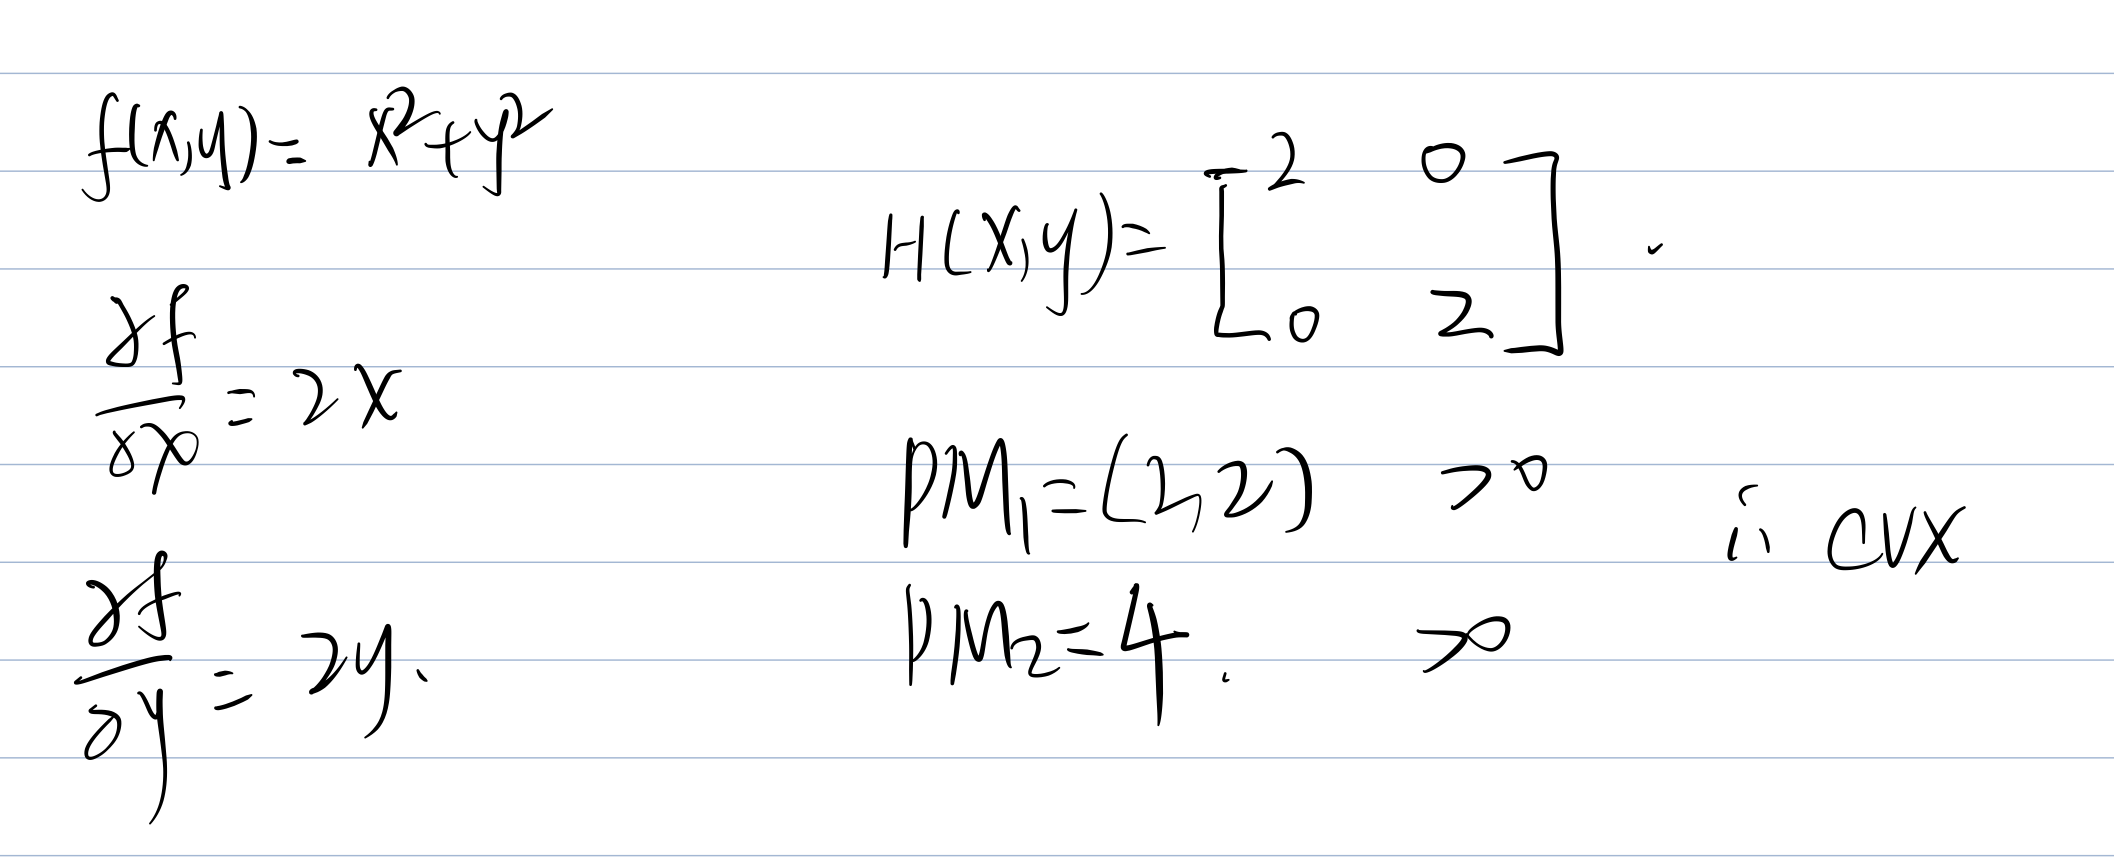 f(x,y) = x²+y²
∂f/∂x = 2x
∂f/∂y = 2y.
H(x,y) = [2 0
0 2].
PM₁ = (2,2) >0
PM₂ = 4. >0
∴ CVX